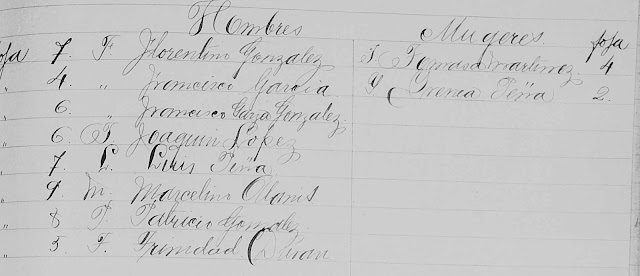 Hombres Mugeres
foja 7. F. Florentino Gonzalez T Tomasa Martinez foja 4
" 4. " Francisco Garcia Y Yrenea Peña 2.
" 6. " Francisco Garza Gonzalez.
" 6 J. Joaquin López
" 7 L. Luis Peña
" 9 M. Marcelino Olanis
" 8 P. Patricio Gonzalez.
" 5 T. Trinidad Duran